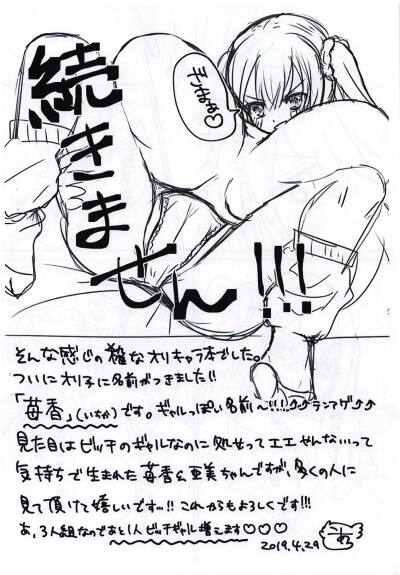 続きません!!!
そんな感じの雑なオリキャラ本でした。
ついにオリ子に名前がつきました!!
「苺香」(いちか)です。ギャルっぽい名前〜!!!↑↑テンアゲ↑↑
見た目はビッチのギャルなのに処女ってエエやんないって
気持ちで生まれた苺香&亜美ちゃんですが、多くの人に
見て頂けて嬉しいです…!! これからもよろしくです!!!
あ、3人組なのであと1人ビッチギャル増えます♡♡♡
2019.4.29